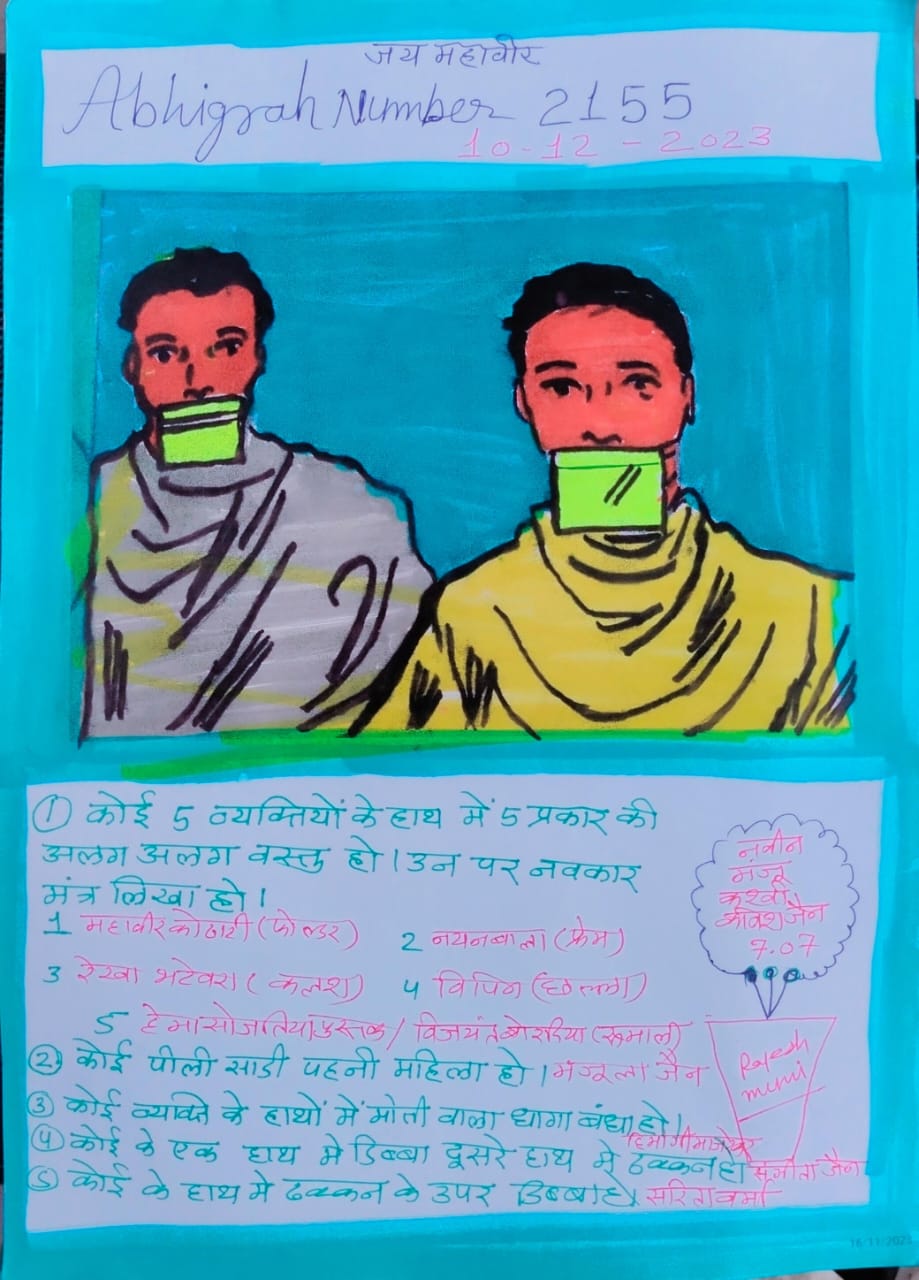 जय महावीर
Abhigrah Number 2155
10-12-2023
① कोई 5 व्यक्तियों के हाथ में 5 प्रकार की
अलग अलग वस्तु हो। उन पर नवकार
मंत्र लिखा हो।
1 महावीर कोठारी (फोल्डर)
2 नयनबाला (फ्रेम)
3 रेखा भटेवरा (कलश)
4 विपिन (छल्ला)
5 हेमा सोजतिया पुस्तक / विजयंत बोरदिया (रूमाल)
② कोई पीली साडी पहनी महिला हो। मंजूला जैन
③ कोई व्यक्ति के हाथों में मोती वाला धागा बंधा हो।
④ कोई के एक हाथ मे डिब्बा दूसरे हाथ में ढक्कन हो सुमीता जैन
⑤ कोई के हाथ मे ढक्कन के उपर डिब्बा हो। सरिता वर्मा
नवीन
मंजू
जैन
7.07
Rajesh
muni
16/11/2023